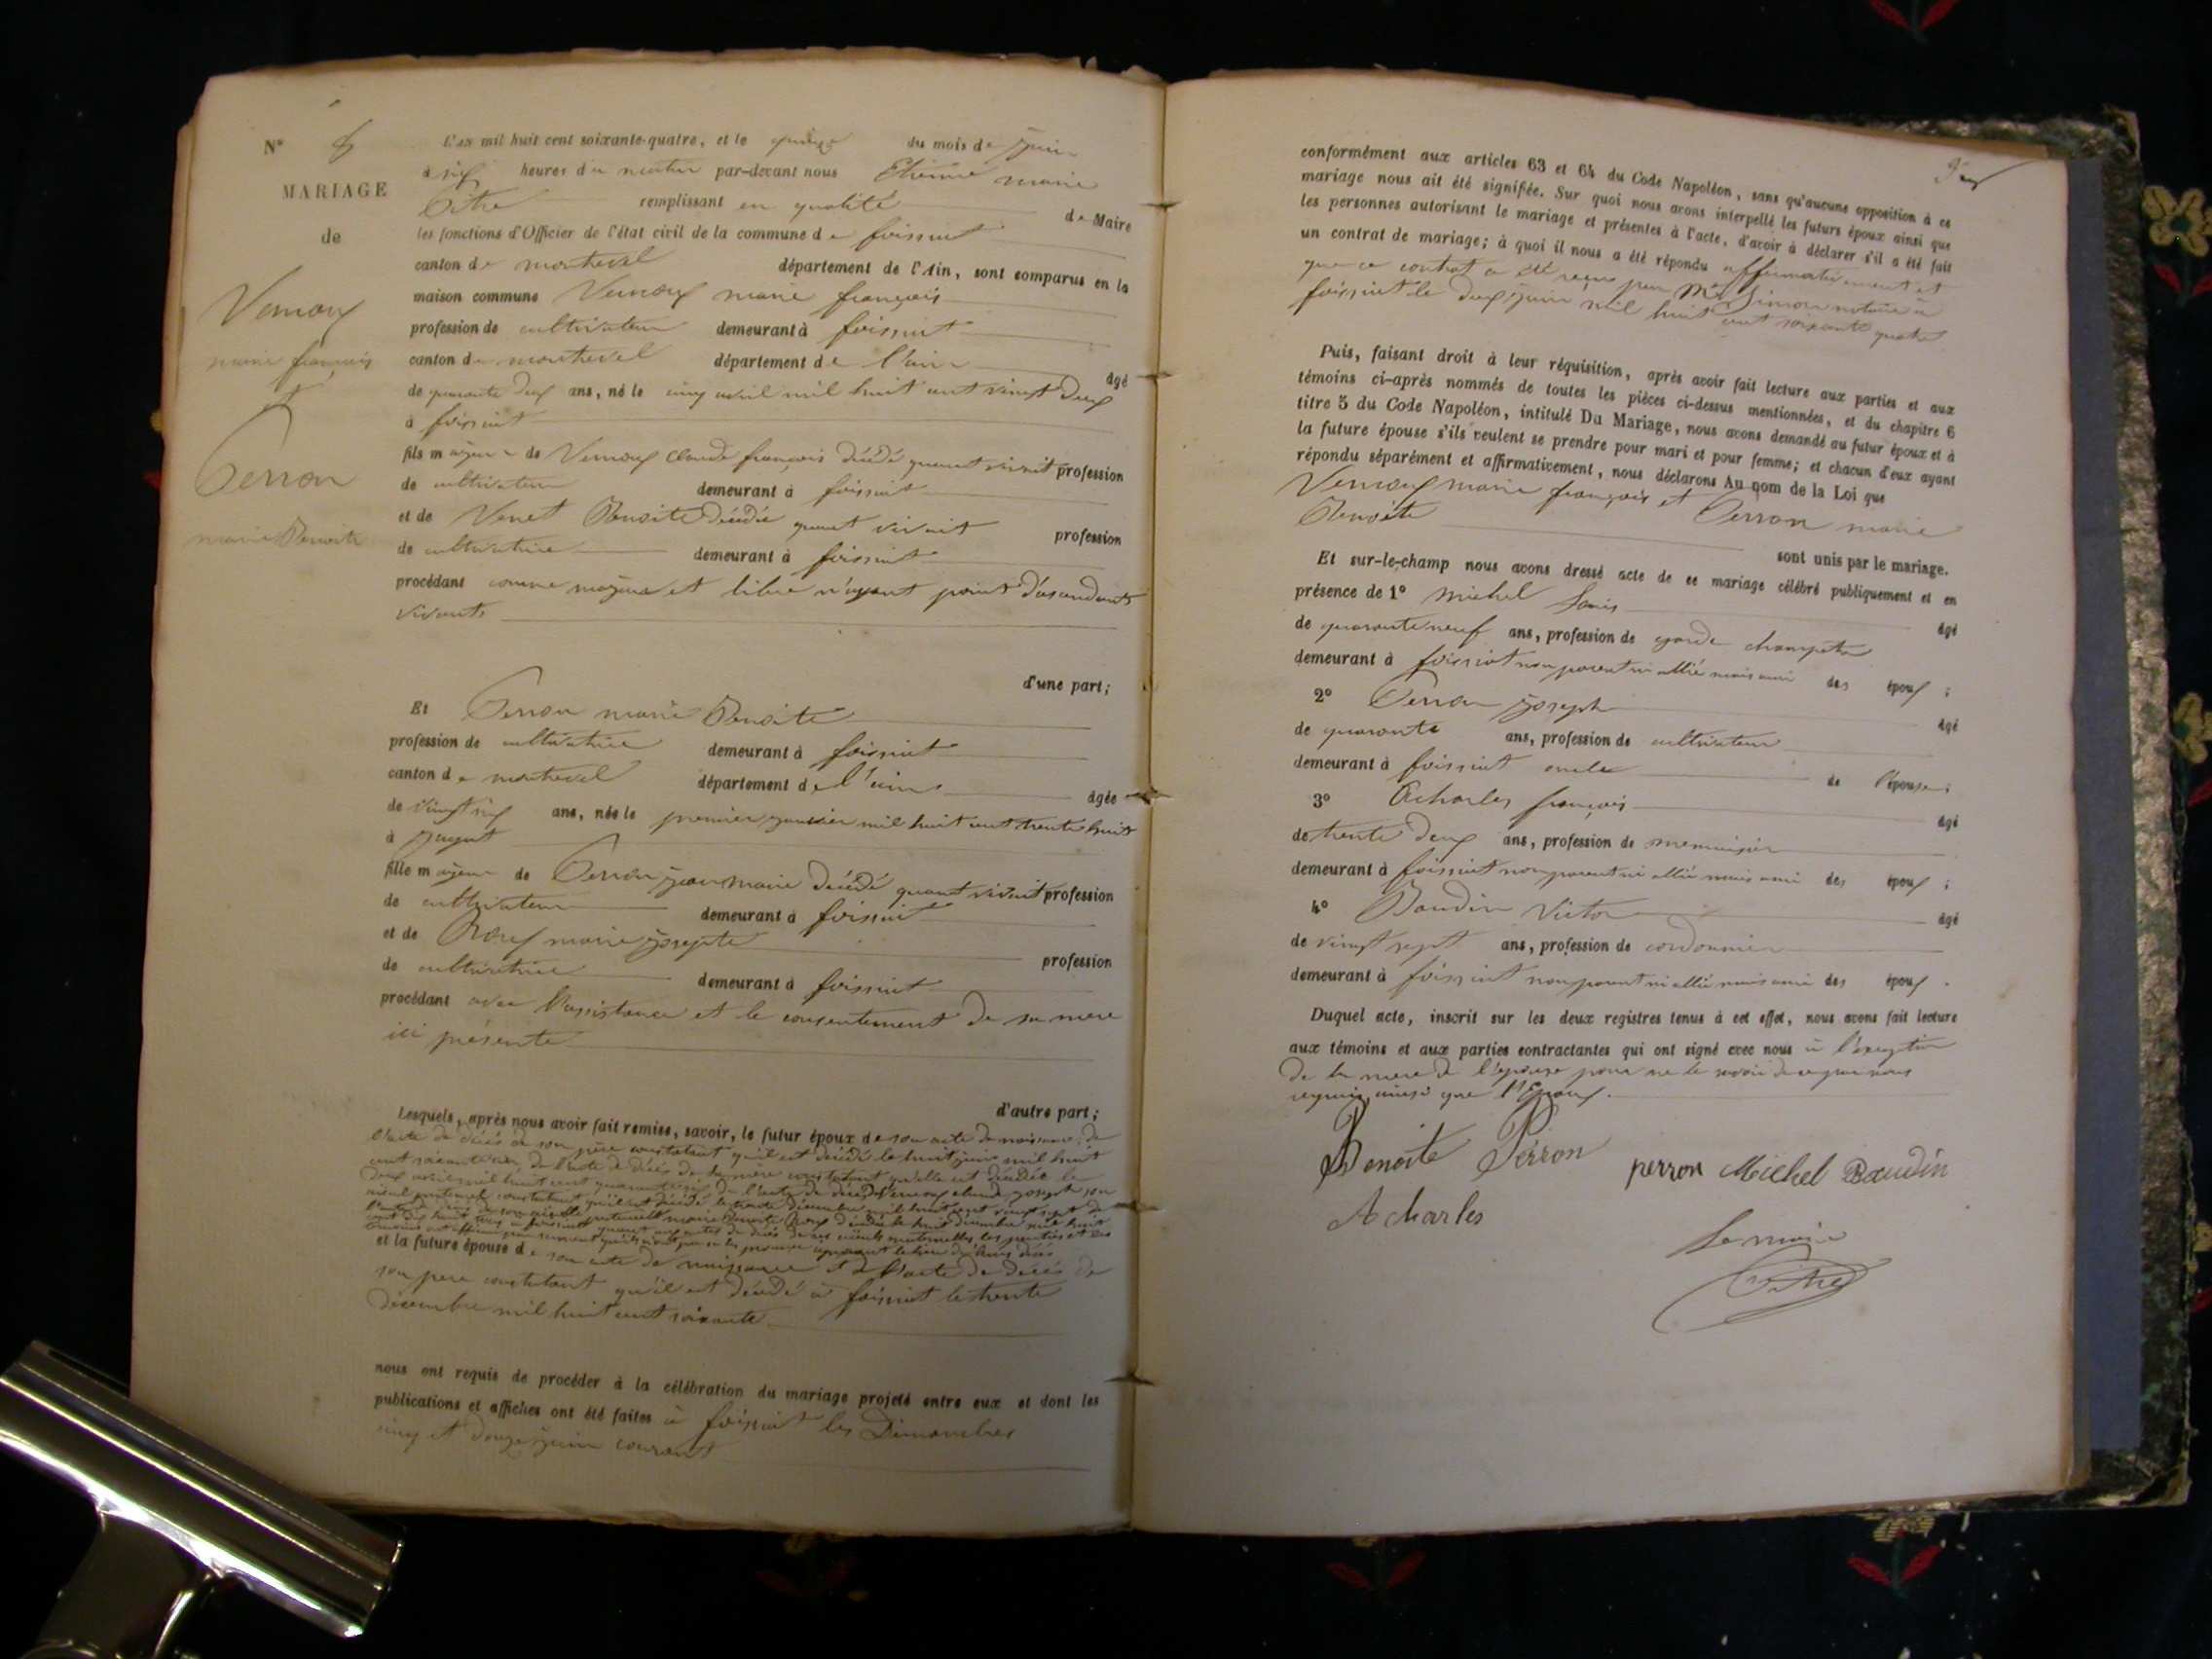 N° 8
MARIAGE
de
Vernoux
marie françois
et
Perron
marie Benoite
L'an mil huit cent soixante-quatre, et le quinze du mois de juin
à six heures du matin par-devant nous Etienne marie
Pitre remplissant en qualité de Maire
les fonctions d'Officier de l'état civil de la commune de foissiat
canton de montrevel département de l'Ain, sont comparus en la
maison commune Vernoux marie françois
profession de cultivateur demeurant à foissiat
canton de montrevel département de l'ain âgé
de quarante deux ans, né le cinq avril mil huit cent vingt deux
à foissiat
fils majeur de Vernoux Claude françois décédé quant vivait profession
de cultivateur demeurant à foissiat
et de Venet Benoite décédée quant vivait profession
de cultivatrice demeurant à foissiat
procédant comme majeur et libre n'ayant point d'asendants
vivants
d'une part;
Et Perron marie Benoite
profession de cultivatrice demeurant à foissiat
canton de montrevel département de l'ain âgée
de vingt six ans, née le premier janvier mil huit cent trente huit
à Jayat
fille majeure de Perron jean marie décédé quant vivait profession
de cultivateur demeurant à foissiat
et de marie josephte profession
de cultivatrice demeurant à foissiat
procédant avec l'assistance et le consentement de sa mere
ici présente
d'autre part;
Lesquels, après nous avoir fait remise, savoir, le futur époux de son acte de naissance, de
l'acte de décés de son père constatant qu'il est décédé le huit juin mil huit
cent soixante de l'acte de décés de sa mère constatant qu'elle est décédée le
deux avril mil huit cent quarante de l'acte de décés de Vernoux claude joseph son
aieul paternel constatant qu'il est décédé le trente décembre mil huit cent vingt sept de
et la future épouse de son acte de naissance et de l'acte de décés de
son pere constatant qu'il est décédé à foissiat le trente
décembre mil huit cent soixante
nous ont requis de procéder à la célébration du mariage projeté entre eux et dont les
publications et affiches ont été faites à foissiat les Dimanches
cinq et douze juin courant
conformément aux articles 63 et 64 du Code Napoléon, sans qu'aucune opposition à ce
mariage nous ait été signifiée. Sur quoi nous avons interpellé les futurs époux ainsi que
les personnes autorisant le mariage et présentes à l'acte, d'avoir à déclarer s'il a été fait
un contrat de mariage; à quoi il nous a été répondu affirmativement et
que ce contrat a été reçu par Me Simon notaire à
foissiat le deux juin mil huit cent soixante quatre
Puis, faisant droit à leur réquisition, après avoir fait lecture aux parties et aux
témoins ci-après nommés de toutes les pièces ci-dessus mentionnées, et du chapitre 6
titre 5 du Code Napoléon, intitulé Du Mariage, nous avons demandé au futur époux et à
la future épouse s'ils veulent se prendre pour mari et pour femme; et chacun d'eux ayant
répondu séparément et affirmativement, nous déclarons Au nom de la Loi que
Vernoux marie françois et Perron marie
Benoite
sont unis par le mariage.
Et sur-le-champ nous avons dressé acte de ce mariage célébré publiquement et en
présence de 1° Michel Louis âgé
de quarante neuf ans, profession de garde champetre
demeurant à foissiat non parent ni allié mais ami des époux ;
2° Perron joseph âgé
de quarante ans, profession de cultivateur
demeurant à foissiat oncle de l'épouse ;
3° Acharles françois âgé
de trente deux ans, profession de menuisier
demeurant à foissiat non parent ni allié mais ami des époux ;
4° Baudin Victor âgé
de vingt sept ans, profession de cordonnier
demeurant à foissiat non parent ni allié mais ami des époux .
Duquel acte, inscrit sur les deux registres tenus à cet effet, nous avons fait lecture
aux témoins et aux parties contractantes qui ont signé avec nous à l'exception
de la mere de l'épouse pour ne le savoir de ce par nous
requis, ainsi que l'Epoux.
Benoite Perron perron Michel Baudin
Acharles
Le maire
Pitre